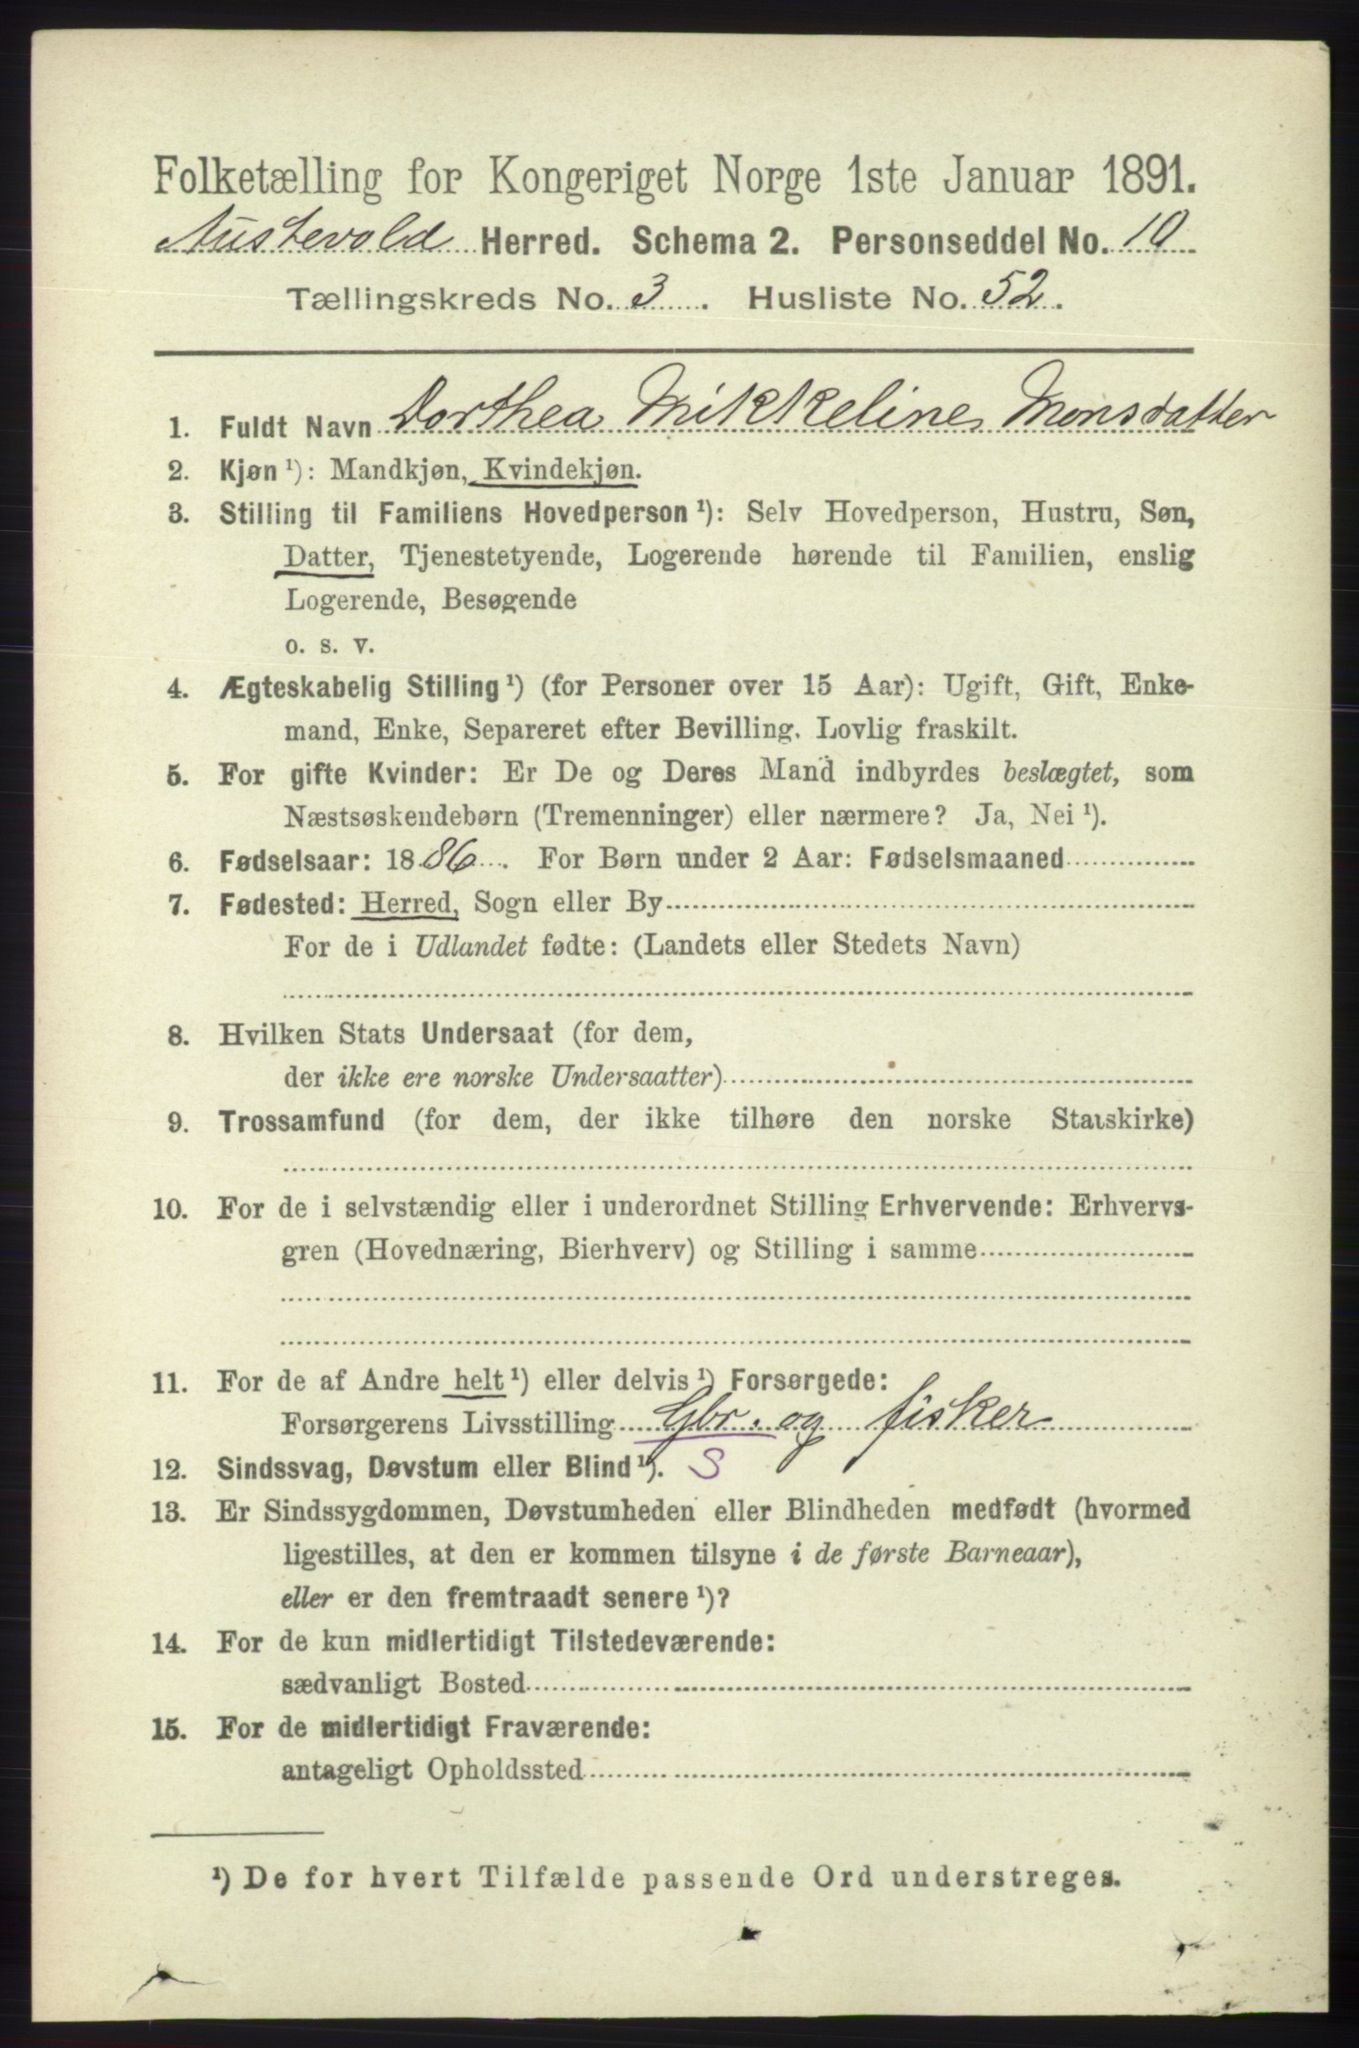 Folketælling for Kongeriget Norge 1ste Januar 1891.
Austevold Herred. Schema 2. Personseddel No. 10
Tællingskreds No. 3. Husliste No. 52.
1. Fuldt Navn Dorthea Mikkeline Monsdatter
2. Kjøn ¹): Mandkjøn, Kvindekjøn.
3. Stilling til Familiens Hovedperson ¹): Selv Hovedperson, Hustru, Søn,
Datter, Tjenestetyende, Logerende hørende til Familien, enslig
Logerende, Besøgende
o. s. v.
4. Ægteskabelig Stilling ¹) (for Personer over 15 Aar): Ugift, Gift, Enke-
mand, Enke, Separeret efter Bevilling. Lovlig fraskilt.
5. For gifte Kvinder: Er De og Deres Mand indbyrdes beslægtet, som
Næstsøskendebørn (Tremenninger) eller nærmere? Ja, Nei ¹).
6. Fødselsaar: 1886. For Børn under 2 Aar: Fødselsmaaned
7. Fødested: Herred, Sogn eller By
For de i Udlandet fødte: (Landets eller Stedets Navn)
8. Hvilken Stats Undersaat (for dem,
der ikke ere norske Undersaatter)
9. Trossamfund (for dem, der ikke tilhøre den norske Statskirke)
10. For de i selvstændig eller i underordnet Stilling Erhvervende: Erhvervs-
gren (Hovednæring, Bierhverv) og Stilling i samme
11. For de af Andre helt ¹) eller delvis ¹) Forsørgede:
Forsørgerens Livsstilling Gbr. og fisker
12. Sindssvag, Døvstum eller Blind ¹). S
13. Er Sindssygdommen, Døvstumheden eller Blindheden medfødt (hvormed
ligestilles, at den er kommen tilsyne i de første Barneaar),
eller er den fremtraadt senere ¹)?
14. For de kun midlertidigt Tilstedeværende:
sædvanligt Bosted
15. For de midlertidigt Fraværende:
antageligt Opholdssted
¹) De for hvert Tilfælde passende Ord understreges.